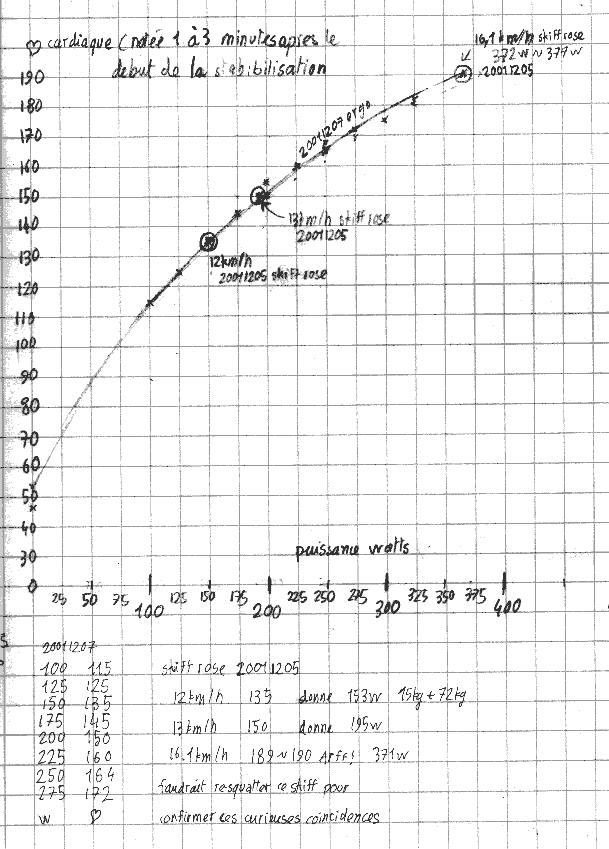 ♡ cardiaque (notée 1 à 3 minutes apres le
debut de la stabibilisation
16,1 km/h skiff rose
372w ~ 374w
20011205
190
180
170
160
150
140
130
120
110
100
90
80
70
60
50
40
30
0
20011207 ergo
13km/h skiff rose
20011205
12km/h
20011205 skiff rose
puissance watts
25 50 75 100 125 150 175 200 225 250 275 300 325 350 375 400
20011207
100 115
125 125
150 135
175 145
200 150
225 160
250 164
275 172
w ♡
skiff rose 20011205
12km/h 135 donne 153w 15kg + 72kg
13km/h 150 donne 195w
16.1km/h 189 ~ 190 Arff! 371w
faudrait resquatter ce skiff pour
confirmer ces curieuses coincidences